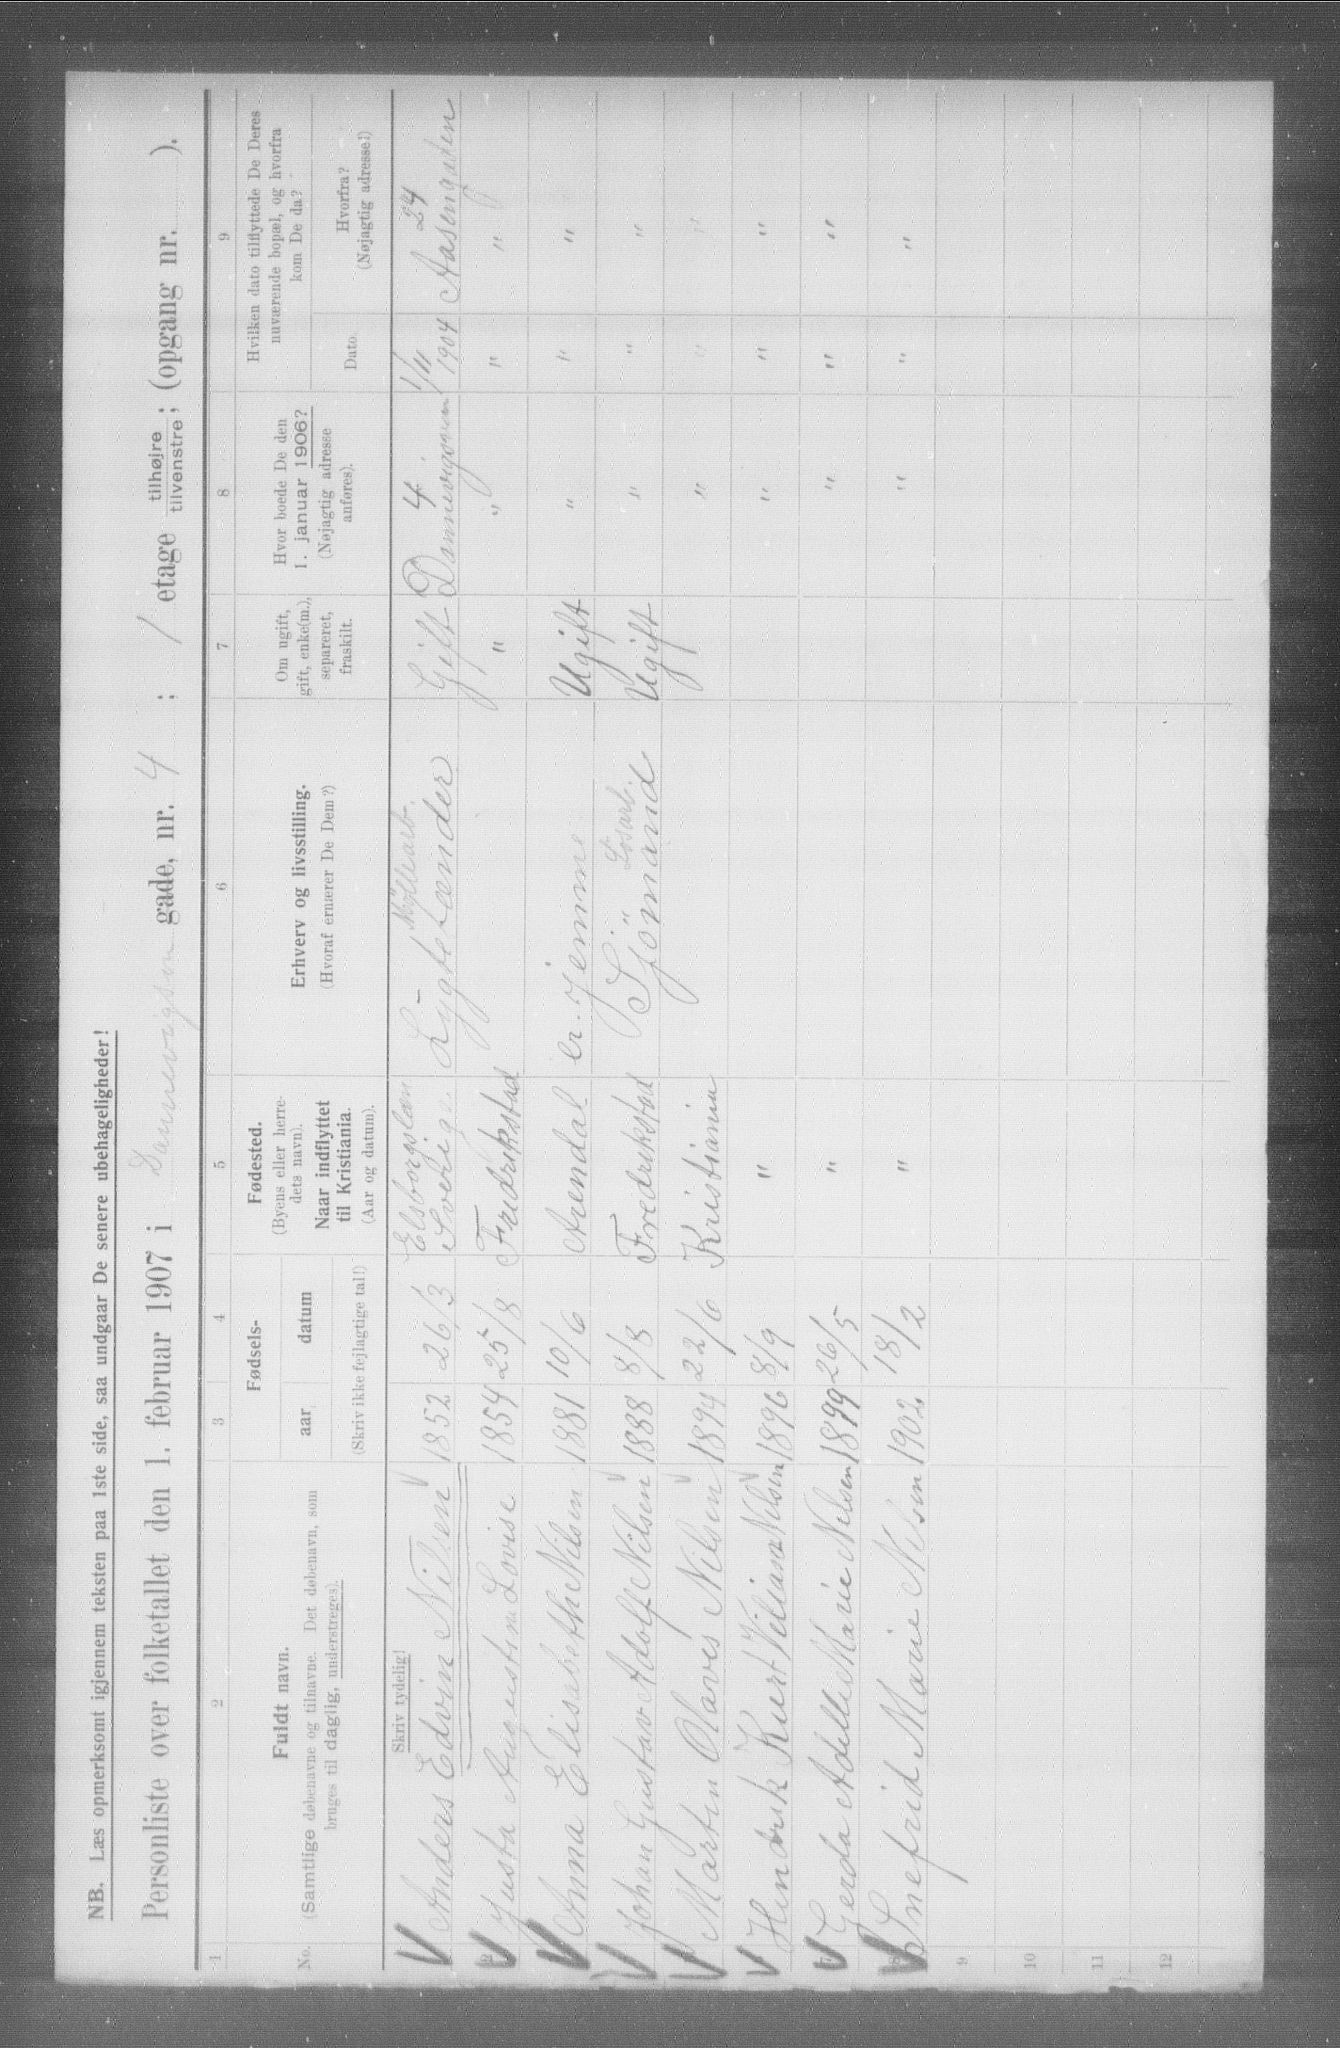 NB. Læs opmerksomt igjennem teksten paa 1ste side, saa undgaar De senere ubehageligheder!
Personliste over folketallet den 1. februar 1907 i Dannevigsvn gade, nr. 4 : 1 etage tilhøjre tilvenstre; (opgang nr. ).
1 2 3 4 5 6 7 8 9
No.
Fuldt navn.
(Samtlige døbenavne og tilnavne. Det døbenavn, som
bruges til daglig, understreges).
Fødsels-
aar
datum
(Skriv ikke fejlagtige tal!)
Fødested.
(Byens eller herre-
dets navn).
Naar indflyttet
til Kristiania.
(Aar og datum).
Erhverv og livsstilling.
(Hvoraf ernærer De Dem?)
Om ugift,
gift, enke(m.),
separeret,
fraskilt.
Hvor boede De den
1. januar 1906?
(Nøjagtig adresse
anføres).
Hvilken dato tilflyttede De Deres
nuværende bopæl, og hvorfra
kom De da?
Dato.
Hvorfra?
(Nøjagtig adresse!)
Skriv tydelig!
Elsborgslæn Möllearb. 4 1/11 24
Anders Edvin Nilsen 1852 26/3 Sverige Lygtetænder Gift Dannevigsven 1904 Aasengaten
2 Justa Augustine Lovise 1854 25/8 Fredrikstad " " " "
Anna Elisabeth Nilsen 1881 10/6 Arendal er. Jemme Ugift " " "
Johan Gustav Adolf Nilsen 1888 8/8 Fredrikstad Sjömand Løsarb. Ugift " " "
Martin Olaves Nilsen 1894 22/6 Kristiania " " "
Hendrik Kurt Villiam Nilsen 1896 8/9 " " " "
7 Gerda Adelle Marie Nilsen 1899 26/5 " " " "
8 Snefrid Marie Nilsen 1902 18/2 " " " "
9
10
11
12